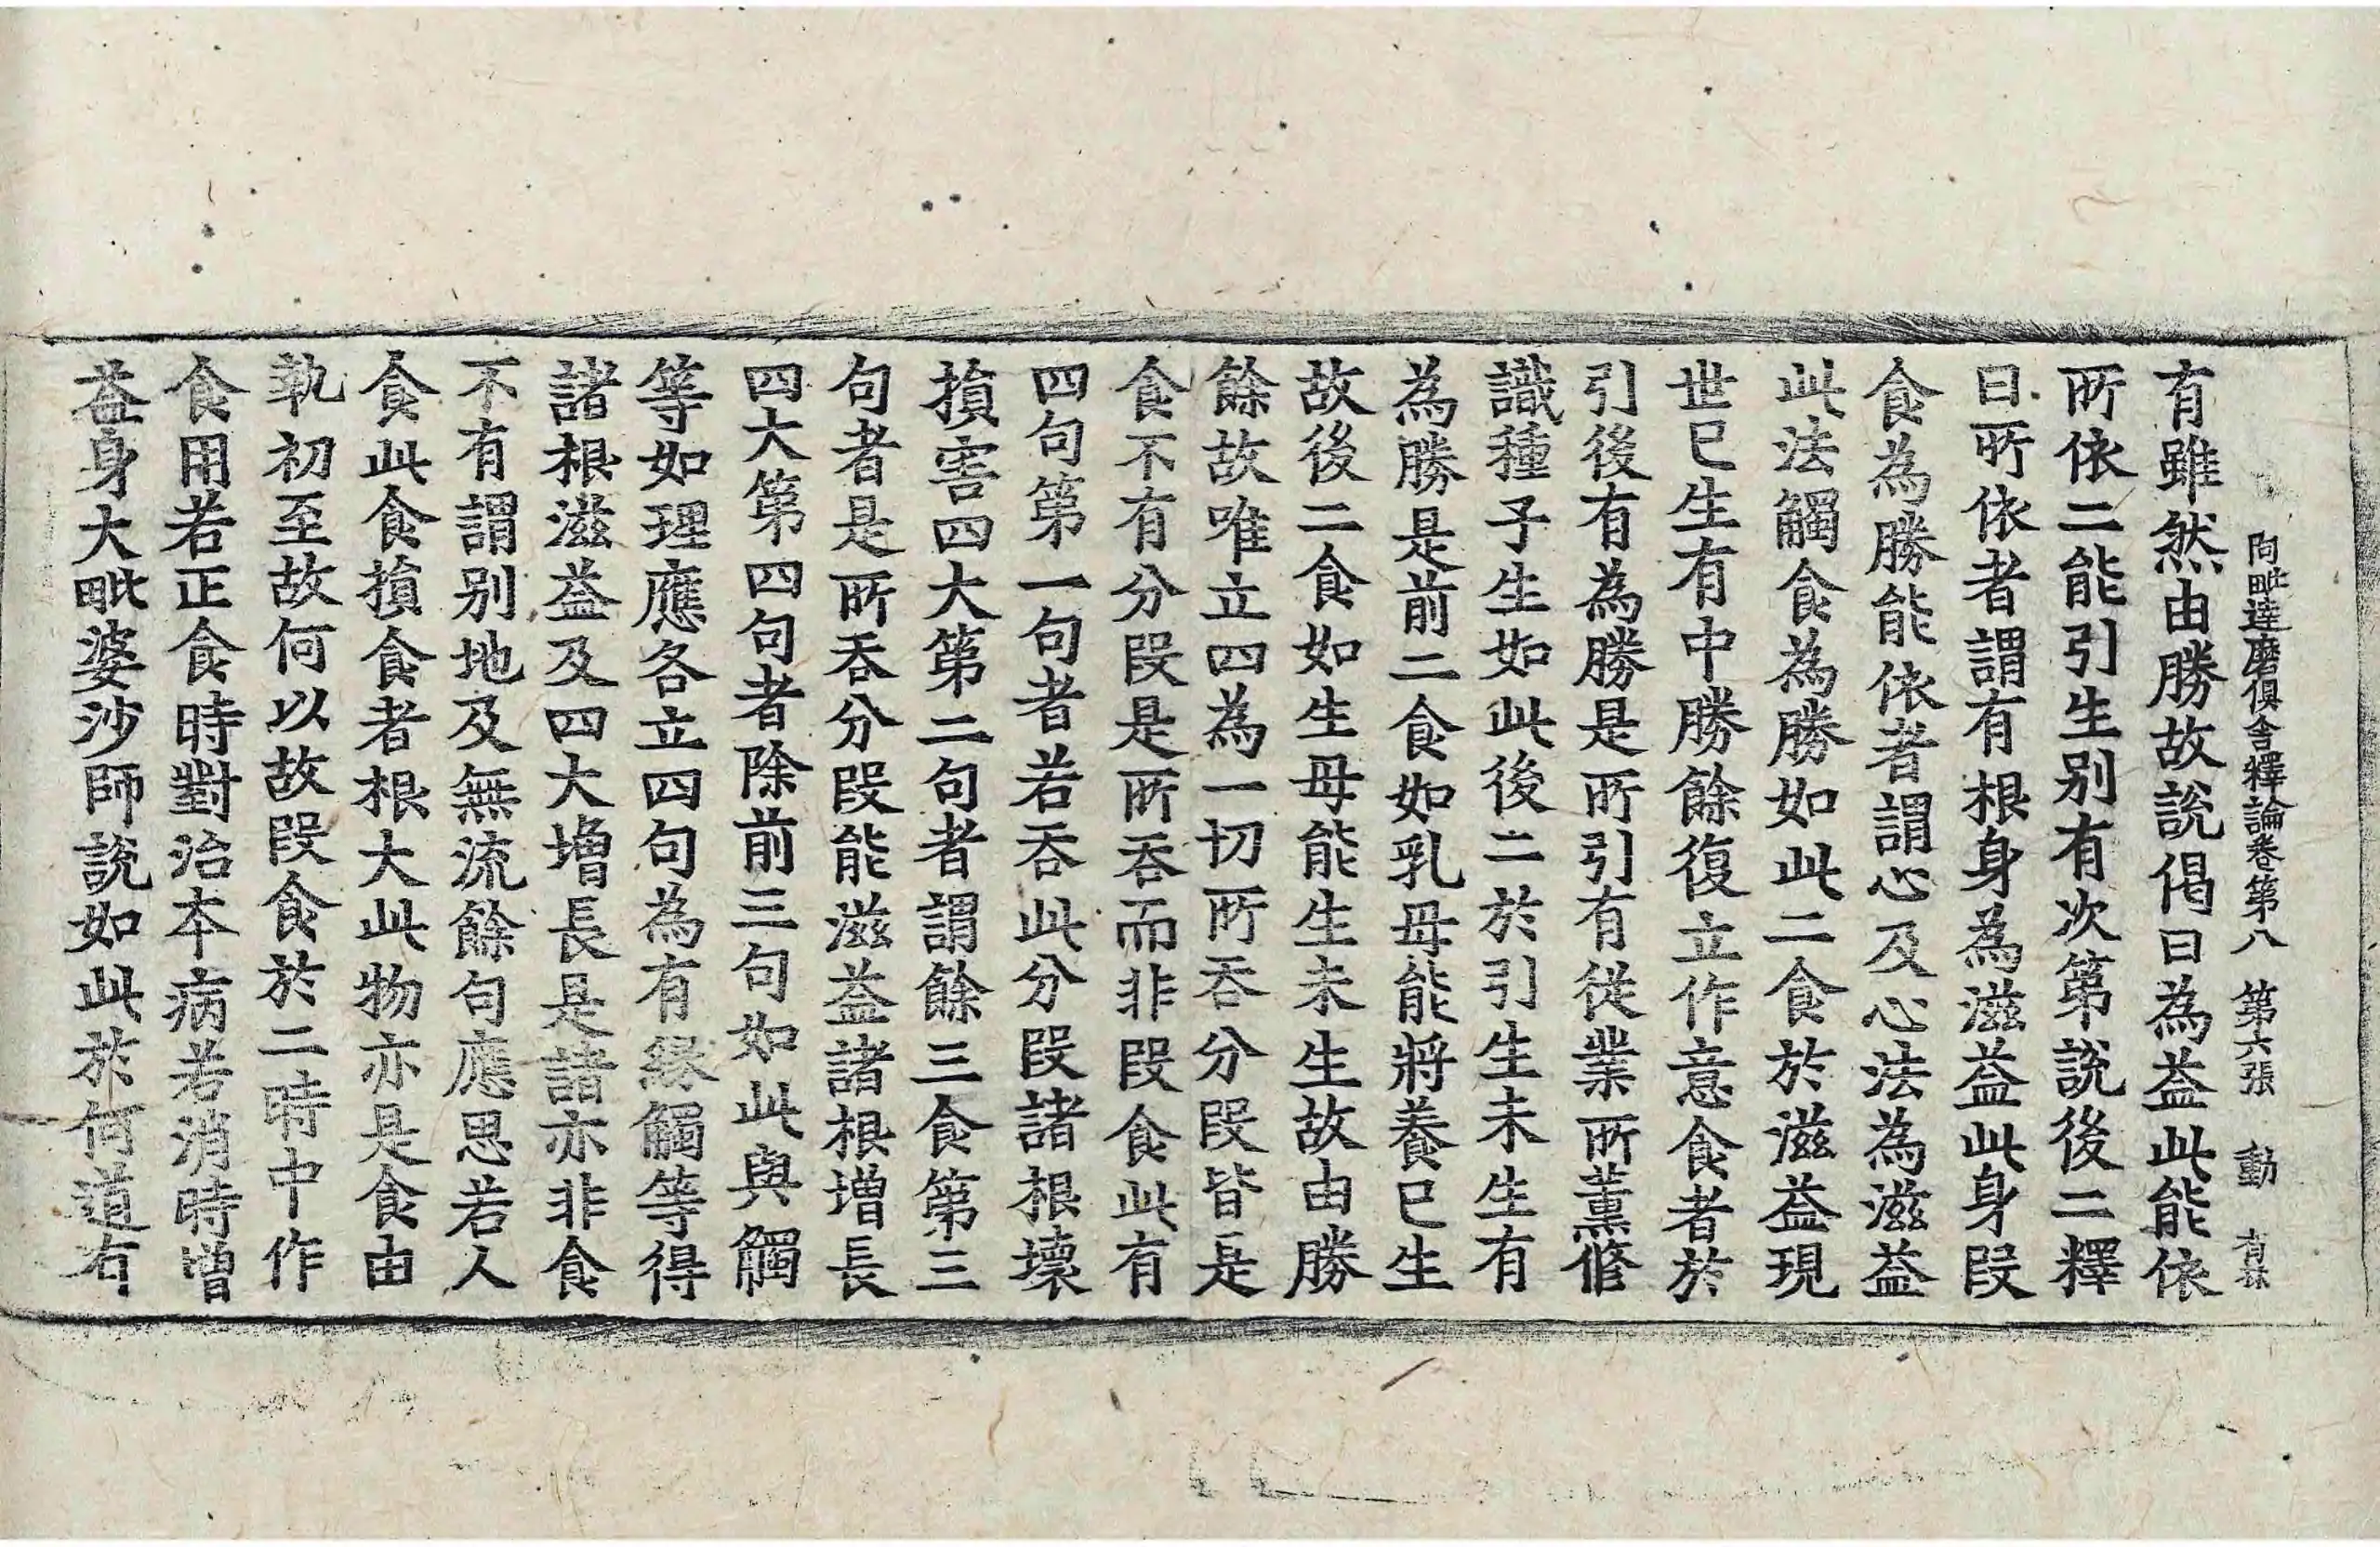 阿毗達磨俱舍釋論卷第八 第六張 動
有雖然由勝故說偈曰為益此能依
所依二能引生别有次第說後二釋
曰所依者謂有根身為滋益此身段
食為勝能依者謂心及心法為滋益
此法觸食為勝如此二食於滋益現
世已生有中勝餘復立作意食者於
引後有為勝是所引有從業所薰修
識種子生如此後二於引生未生有
為勝是前二食如乳母能將養已生
故後二食如生母能生未生故由勝
餘故唯立四為一切所吞分段皆是
食不有分段是所吞而非段食此有
四句第一句者若吞此分段諸根壞
損害四大第二句者謂餘三食第三
句者是所吞分段能滋益諸根增長
四大第四句者除前三句如此與觸
等如理應各立四句為有緣觸等得
諸根滋益及四大增長是諸亦非食
不有謂别地及無流餘句應思若人
食此食損食者根大此物亦是食由
執初至故何以故段食於二時中作
食用若正食時對治本病若消時增
益身大毗婆沙師說如此於何道有